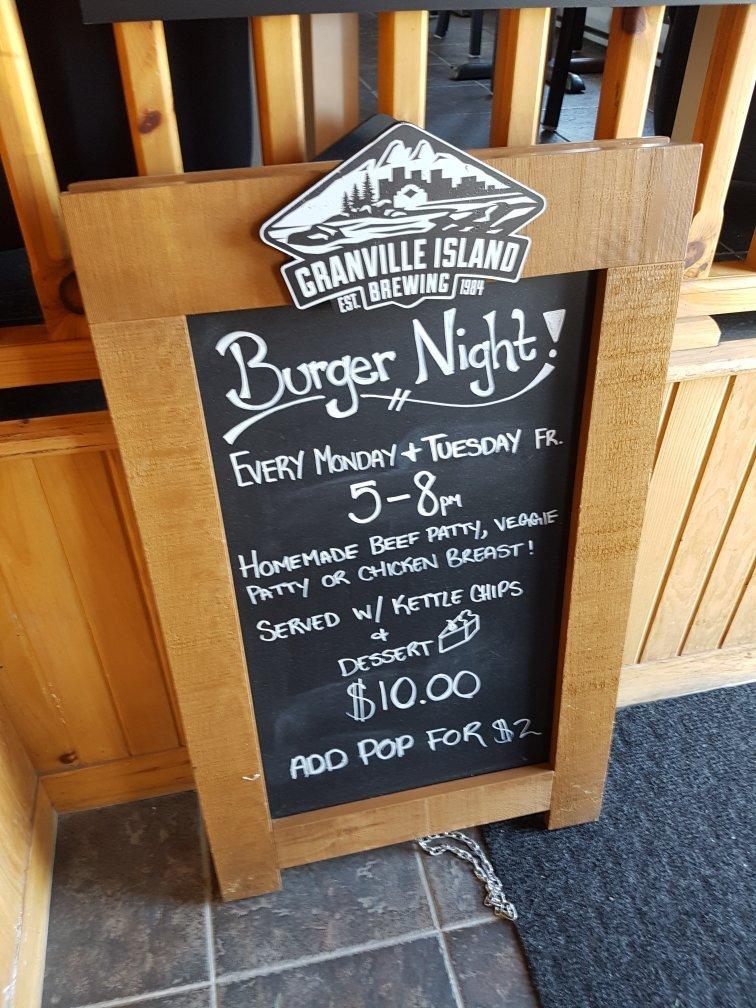 GRANVILLE ISLAND
EST. BREWING 1984
Burger Night!
EVERY MONDAY + TUESDAY FR.
5-8PM
HOMEMADE BEEF PATTY, VEGGIE
PATTY OR CHICKEN BREAST!
SERVED W/ KETTLE CHIPS
&
DESSERT
$10.00
ADD POP FOR $2